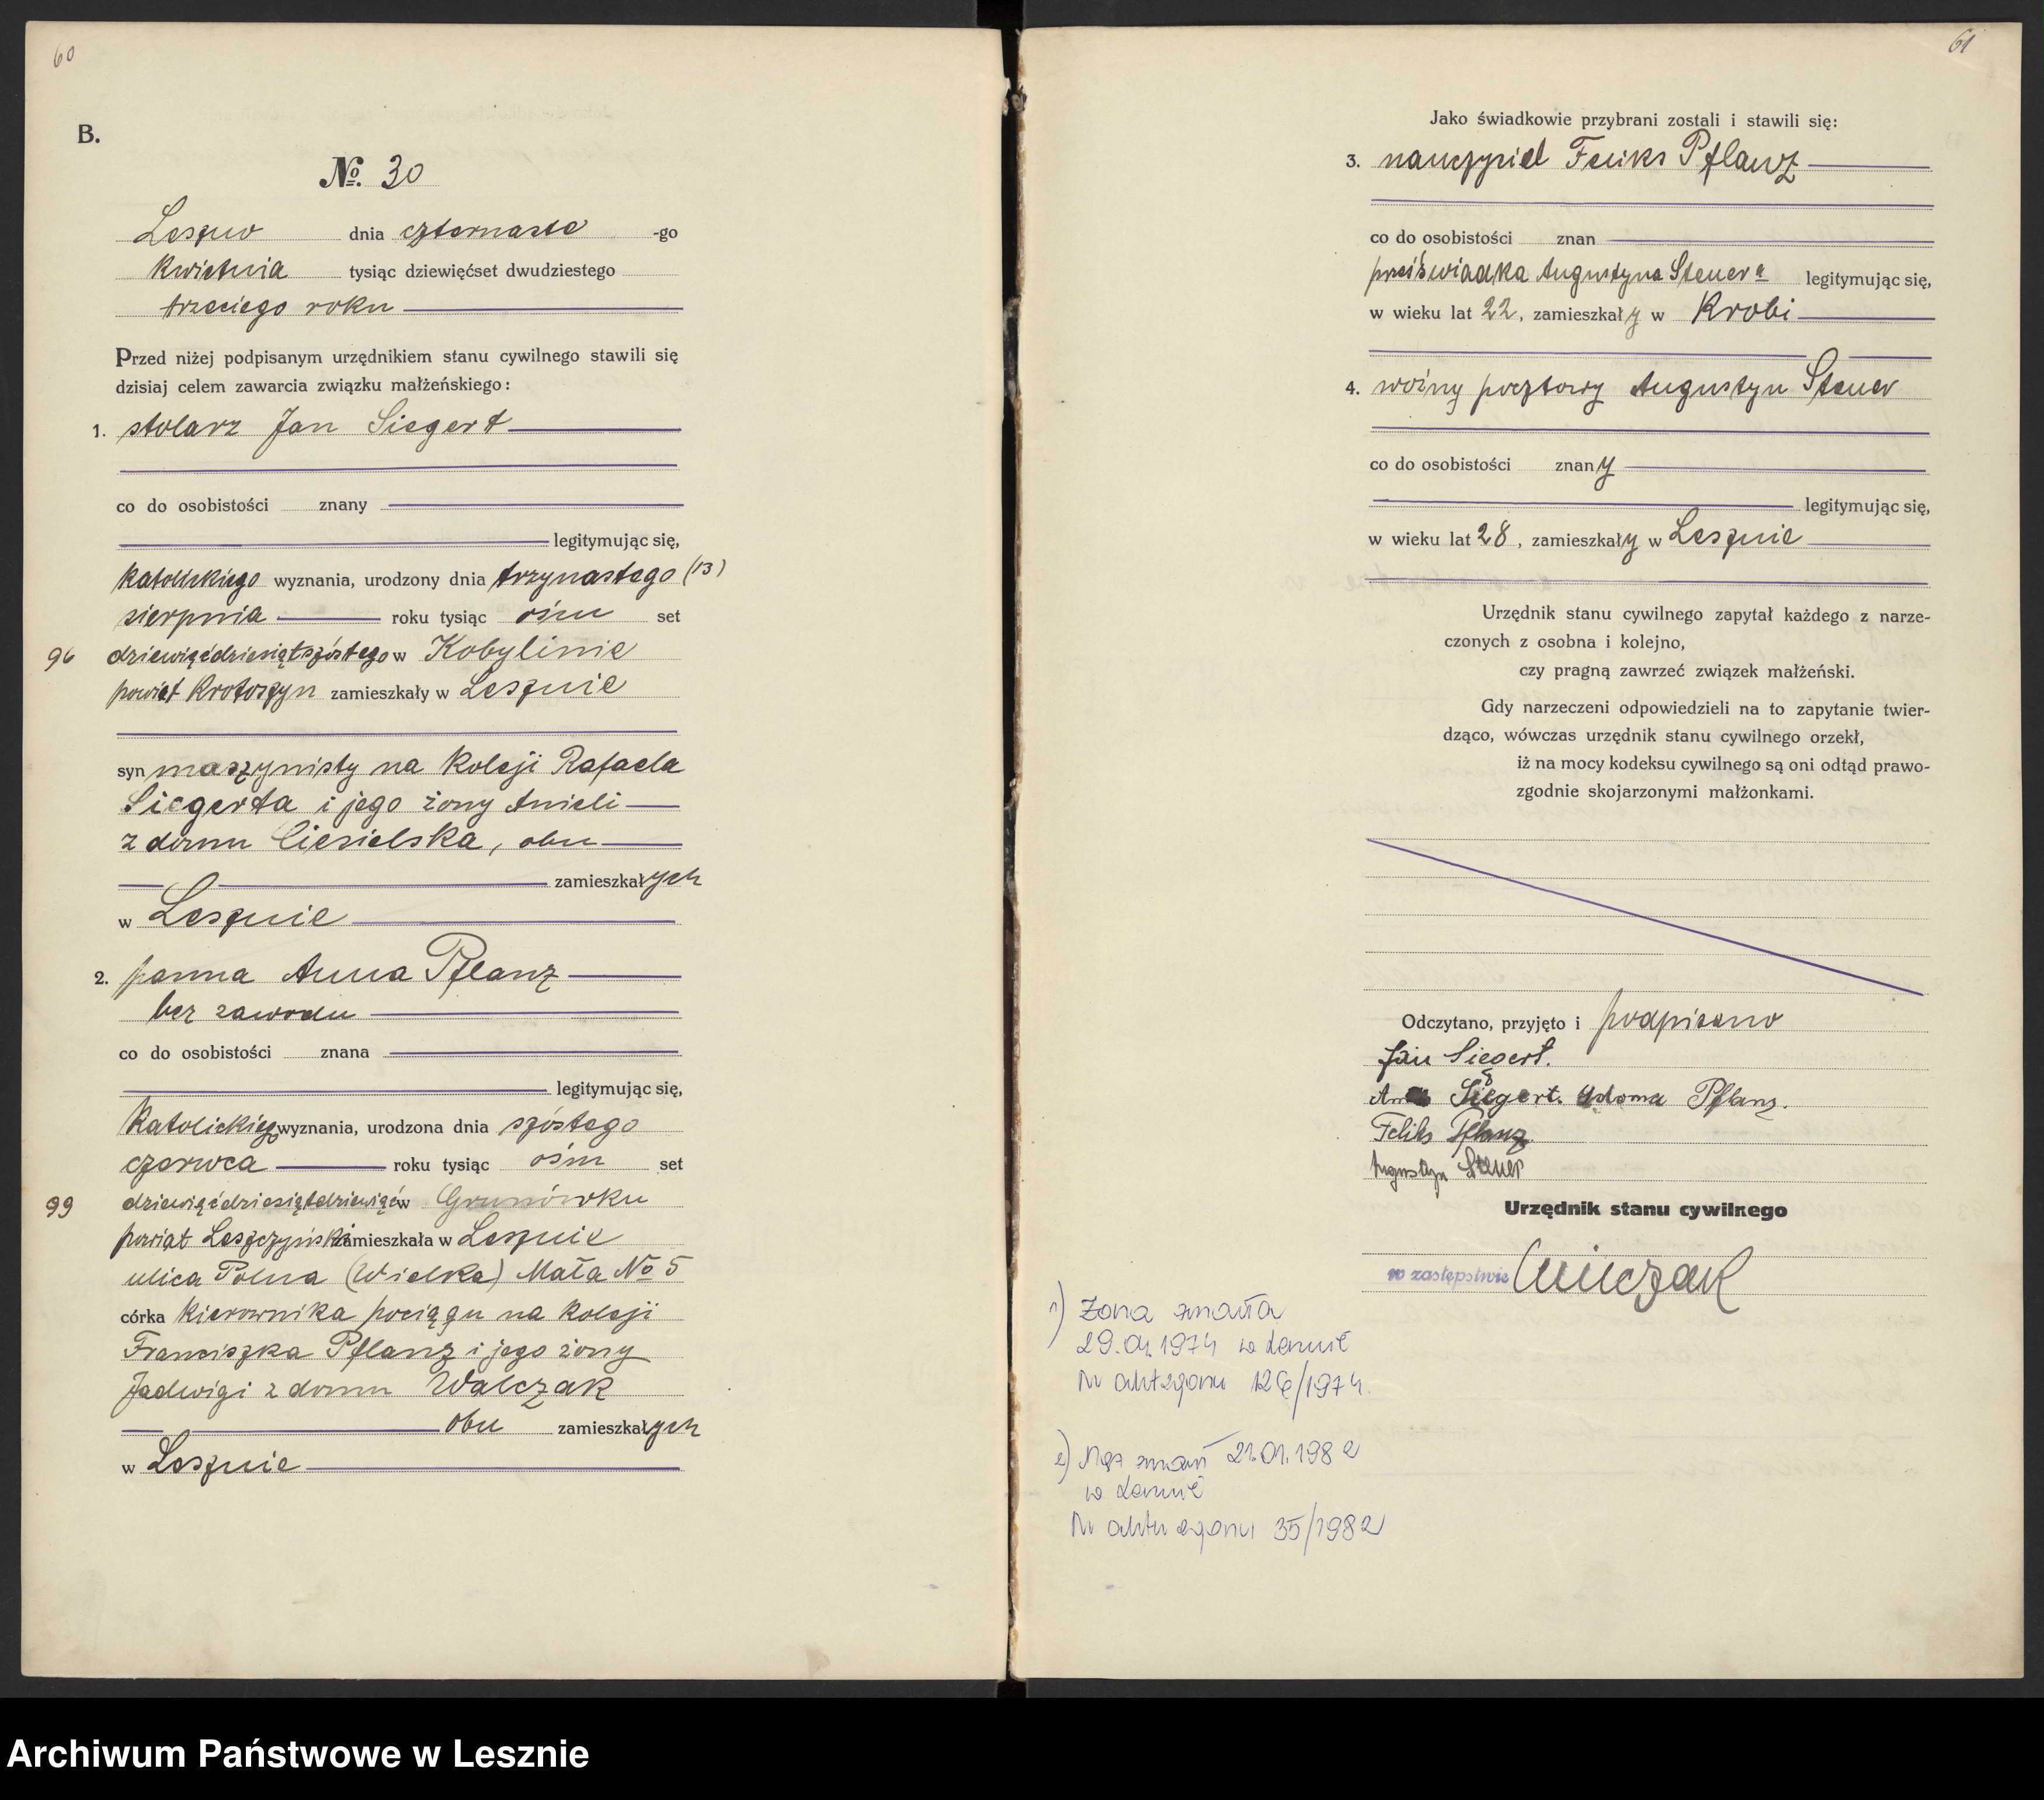 60
B.
№. 30
Leszno dnia czternaste -go
kwietnia tysiąc dziewięćset dwudziestego
trzeciego roku
Przed niżej podpisanym urzędnikiem stanu cywilnego stawili się
dzisiaj celem zawarcia związku małżeńskiego:
1. stolarz Jan Siegert
co do osobistości znany
legitymując się,
katolickiego wyznania, urodzony dnia trzynastego (13)
sierpnia roku tysiąc ośm set
96 dziewięćdziesiątszóstego w Kobylinie
powiat Krotoszyn zamieszkały w Lesznie
syn maszynisty na koleji Rafaela
Siegerta i jego żony Anieli
z domu Ciesielska, obu
zamieszkałych
w Lesznie
2. panna Anna Pflanz
bez zawodu
co do osobistości znana
legitymując się,
katolickiego wyznania, urodzona dnia szóstego
czerwca roku tysiąc ośm set
99 w Grunówku
powiat Leszczyński zamieszkała w Lesznie
ulica Polna (Wielka) Mała № 5
córka kierownika pociągu na koleji
Franciszka Pflanz i jego żony
Jadwigi z domu Walczak
obu zamieszkałych
w Lesznie
61
Jako świadkowie przybrani zostali i stawili się:
3. nauczyciel Feliks Pflanz
co do osobistości znan
przez świadka Augustyna Steuera legitymując się,
w wieku lat 22, zamieszkały w Krobi
4. woźny pocztowy Augustyn Steuer
co do osobistości znany
legitymując się,
w wieku lat 28, zamieszkały w Lesznie
Urzędnik stanu cywilnego zapytał każdego z narze-
czonych z osobna i kolejno,
czy pragną zawrzeć związek małżeński.
Gdy narzeczeni odpowiedzieli na to zapytanie twier-
dząco, wówczas urzędnik stanu cywilnego orzekł,
iż na mocy kodeksu cywilnego są oni odtąd prawo-
zgodnie skojarzonymi małżonkami.
Odczytano, przyjęto i podpisano
Jan Siegert.
Anna Siegert. z doma Pflanz.
Feliks Pflanz
Augustyn Steuer
Urzędnik stanu cywilnego
w zastępstwie
1) Żona zmarła
29.01.1974 w Lesznie
Nr aktu zgonu 126/1974.
2) Mąż zmarł 21.01.1982
w Lesznie
Nr aktu zgonu 35/1982
Archiwum Państwowe w Lesznie